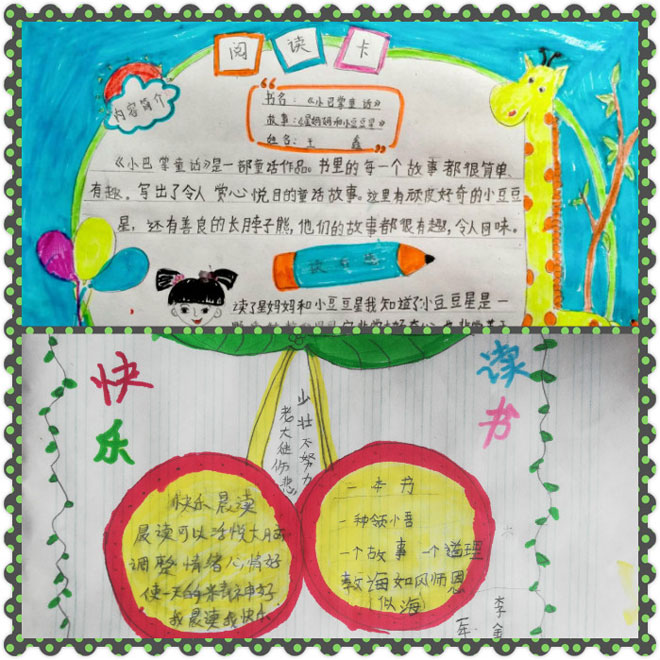 阅读卡
内容简介
书名：《小巴掌童话》
故事：《星妈妈和小豆豆星》
姓名：王鑫
《小巴掌童话》是一部童话作品。书里的每一个故事都很简单、
有趣，写出了令人赏心悦目的童话故事。这里有顽皮好奇的小豆豆
星，还有善良的长脖子熊，他们的故事都很有趣，令人回味。
读后感
读了星妈妈和小豆豆星我知道了小豆豆星是一
快乐
读书
少壮不努力
老大徒伤悲
快乐晨读
晨读可以活悦大脑
调整情绪心情好
使一天的精神好
我晨读我快乐
一本书
一种领小吾
一个故事一个道理
教海如风师恩
似海
李金